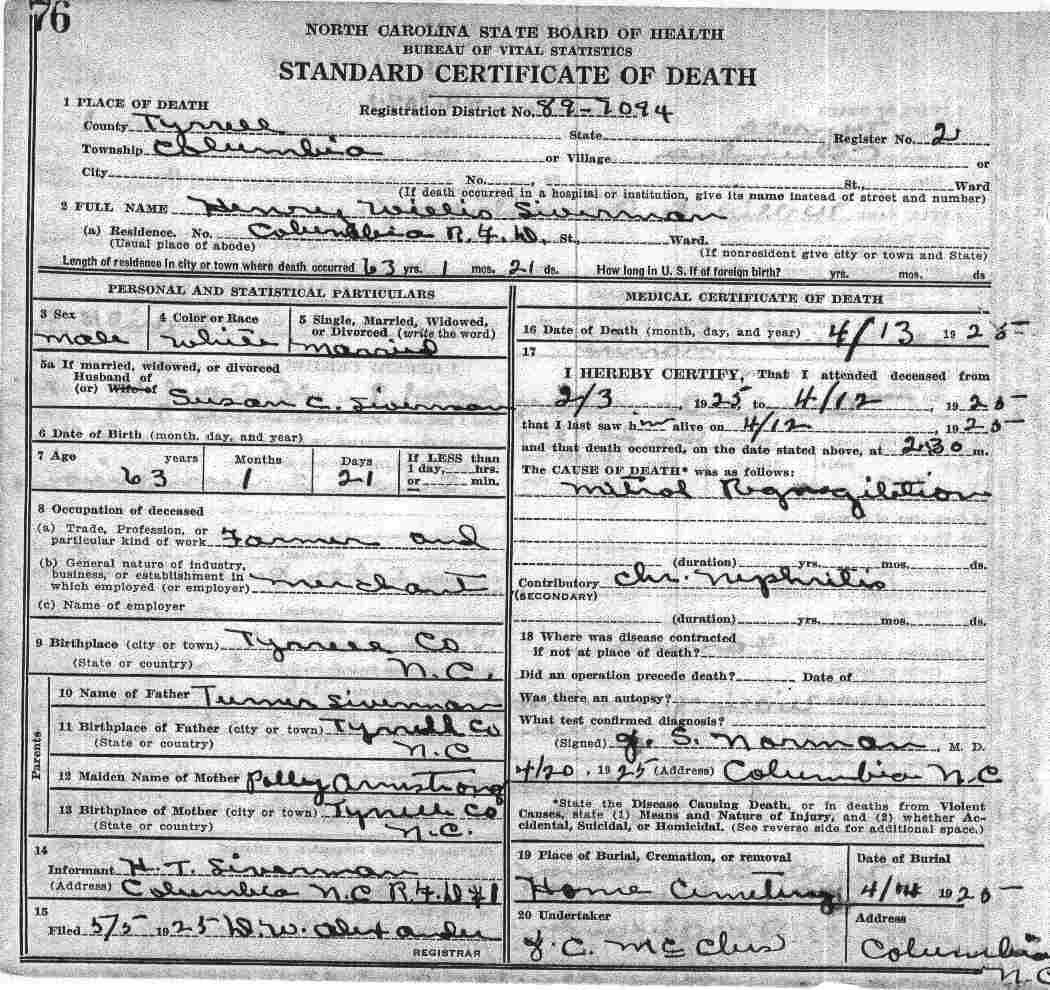 76
NORTH CAROLINA STATE BOARD OF HEALTH
BUREAU OF VITAL STATISTICS
STANDARD CERTIFICATE OF DEATH
1 PLACE OF DEATH
Registration District No. 89-7094
County Tyrrell State Register No. 2
Township Columbia or Village or
City No. St., Ward
(If death occurred in a hospital or institution, give its name instead of street and number)
2 FULL NAME Henry Willis Siverman
(a) Residence. No. Columbia R.F.D. St., Ward.
(Usual place of abode) (If nonresident give city or town and State)
Length of residence in city or town where death occurred 63 yrs. 1 mos. 21 ds. How long in U. S. if of foreign birth? yrs. mos. ds
PERSONAL AND STATISTICAL PARTICULARS
3 Sex
male
4 Color or Race
white
5 Single, Married, Widowed, or Divorced (write the word)
married
5a If married, widowed, or divorced
Husband of
(or) Wife of Susan C. Siverman
6 Date of Birth (month, day, and year)
7 Age years Months Days If LESS than
1 day, hrs.
or min.
63 1 21
8 Occupation of deceased
(a) Trade, Profession, or
particular kind of work Farmer and
(b) General nature of industry,
business, or establishment in
which employed (or employer) merchant
(c) Name of employer
9 Birthplace (city or town) Tyrrell Co
(State or country) N.C.
Parents
10 Name of Father Turner Siverman
11 Birthplace of Father (city or town) Tyrrell Co
(State or country) N.C
12 Maiden Name of Mother Polly Armstrong
13 Birthplace of Mother (city or town) Tyrrell Co
(State or country) N.C.
14
Informant H. T. Siverman
(Address) Columbia N.C R.F.D #1
15
Filed 5/5 1925 D.W. Alexander
REGISTRAR
MEDICAL CERTIFICATE OF DEATH
16 Date of Death (month, day, and year) 4/13 1925
17
I HEREBY CERTIFY, That I attended deceased from
2/3, 1925 to 4/12, 1925
that I last saw him alive on 4/12, 1925
and that death occurred, on the date stated above, at 2:30 m.
The CAUSE OF DEATH* was as follows:
mitral
(duration) yrs. mos. ds.
Contributory Chr. Nephritis
(SECONDARY)
(duration) yrs. mos. ds.
18 Where was disease contracted
if not at place of death?
Did an operation precede death? Date of
Was there an autopsy?
What test confirmed diagnosis?
(Signed) J. S. Norman, M. D.
4/20, 1925 (Address) Columbia N C
*State the Disease Causing Death, or in deaths from Violent
Causes, state (1) Means and Nature of Injury, and (2) whether Ac-
cidental, Suicidal, or Homicidal. (See reverse side for additional space.)
19 Place of Burial, Cremation, or removal
Home Cemetery
Date of Burial
4/14 1925
20 Undertaker
J. C. McClees
Address
Columbia
N.C